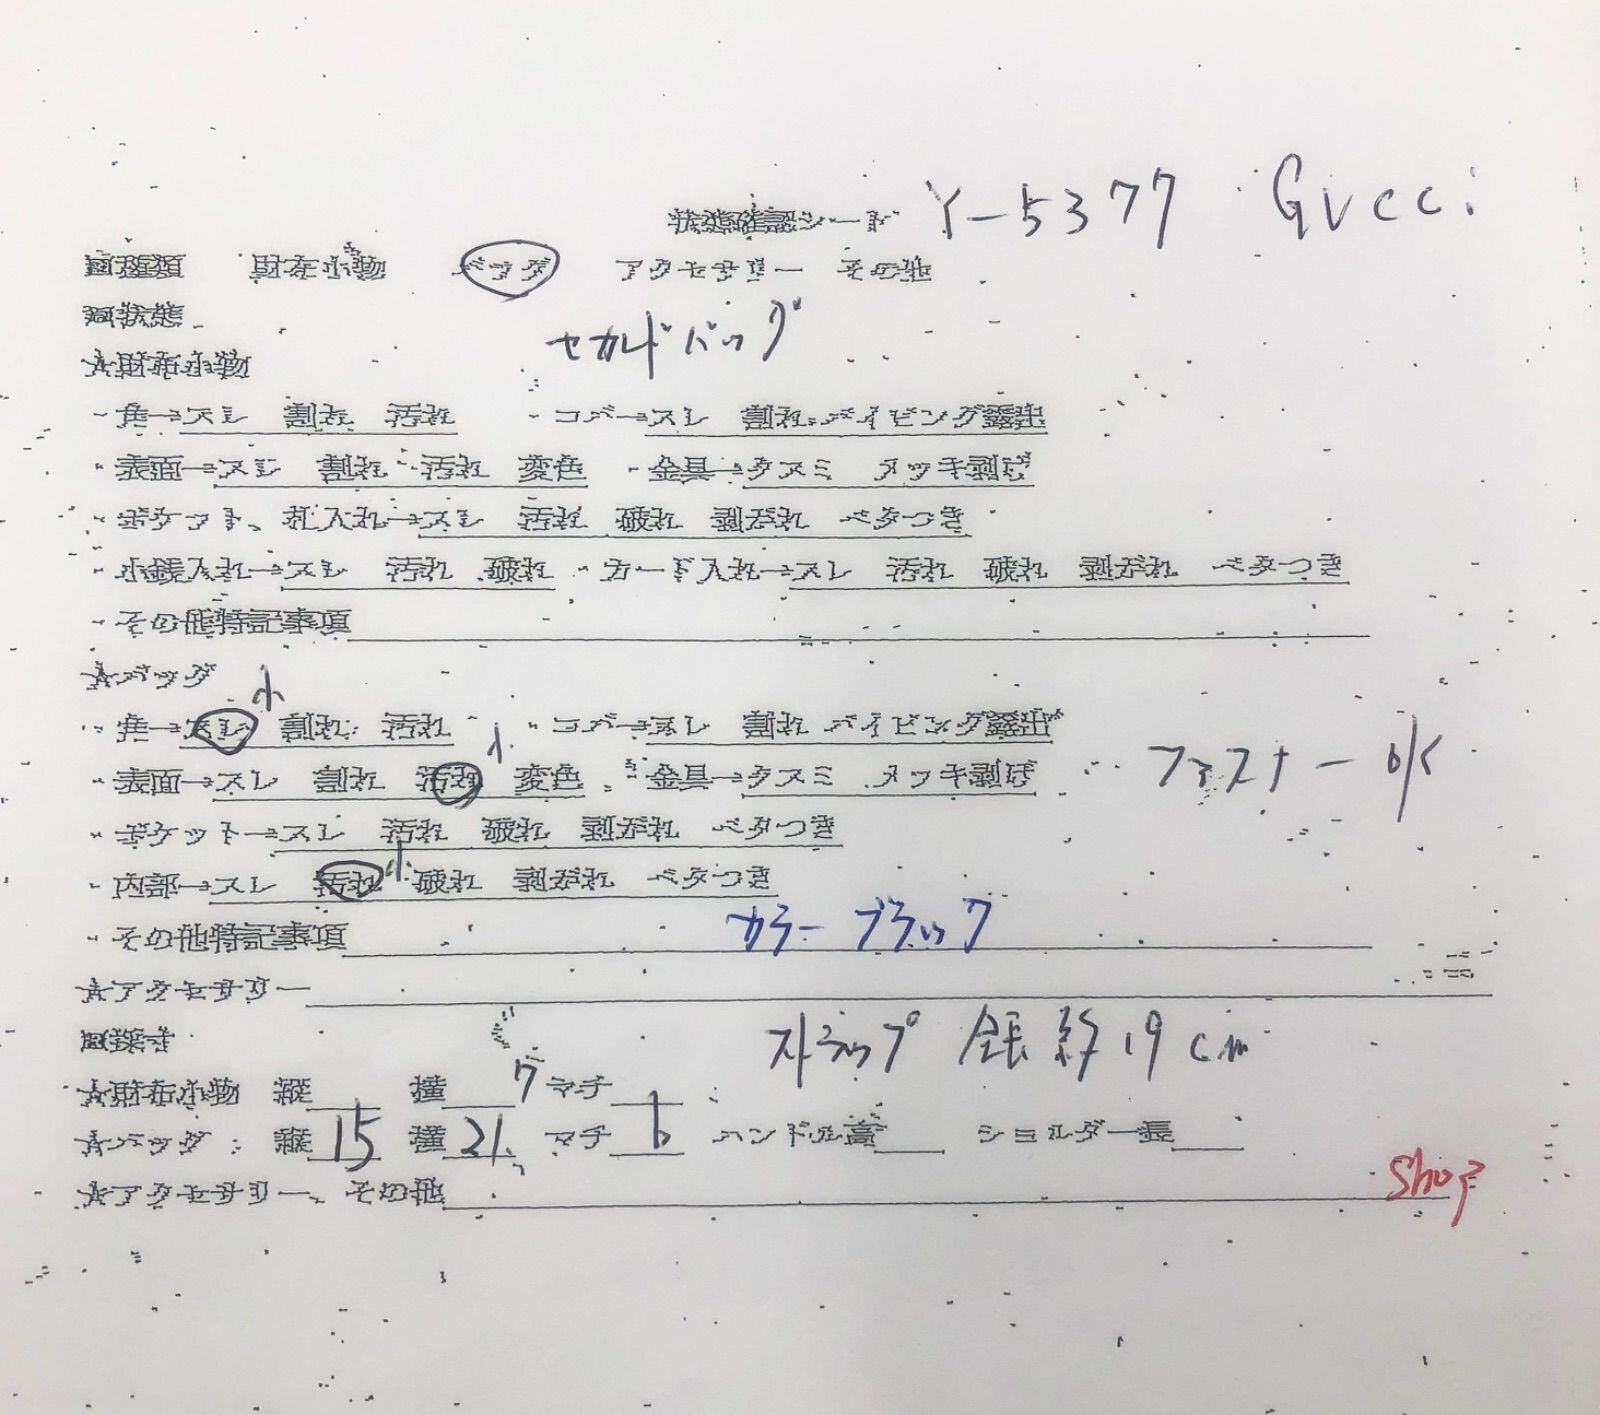 状態確認シート Y-5377 Gucci
□種類 財布小物 バッグ アクセサリー その他
□状態
セカンドバッグ
☆財布小物
・角→スレ 割れ 汚れ ・コバ→スレ 割れ パイピング露出
・表面→スレ 割れ 汚れ 変色 ・金具→クスミ メッキ剥げ
・ポケット、札入れ→スレ 汚れ 破れ 剥がれ ベタつき
・小銭入れ→スレ 汚れ 破れ ・カード入れ→スレ 汚れ 破れ 剥がれ ベタつき
・その他特記事項
☆バッグ
小
・角→スレ 割れ 汚れ ・コバ→スレ 割れ パイピング露出
小
・表面→スレ 割れ 汚れ 変色 ・金具→クスミ メッキ剥げ ファスナー OK
・ポケット→スレ 汚れ 破れ 剥がれ ベタつき
・内部→スレ 汚れ 小 破れ 剥がれ ベタつき
・その他特記事項 カラー ブラック
☆アクセサリー
□採寸 ストラップ 全長 約19cm
☆財布小物 縦 横 マチ
☆バッグ 縦15 横21 マチ6 ハンドル高 ショルダー長
☆アクセサリー、その他 Shop